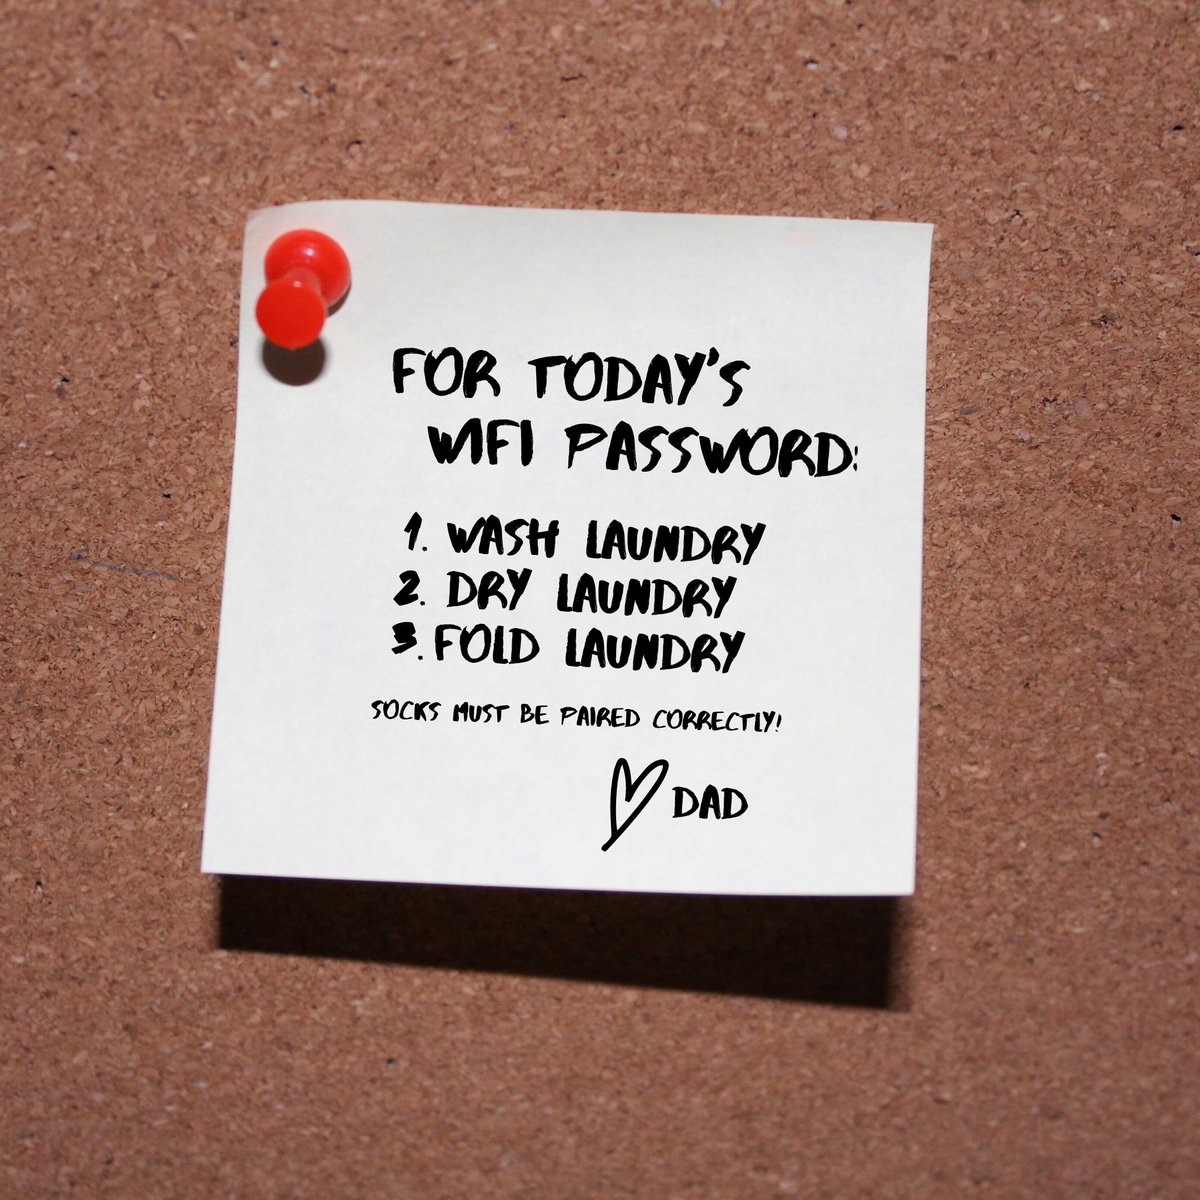 FOR TODAY'S
WIFI PASSWORD:
1. WASH LAUNDRY
2. DRY LAUNDRY
3. FOLD LAUNDRY
SOCKS MUST BE PAIRED CORRECTLY!
DAD